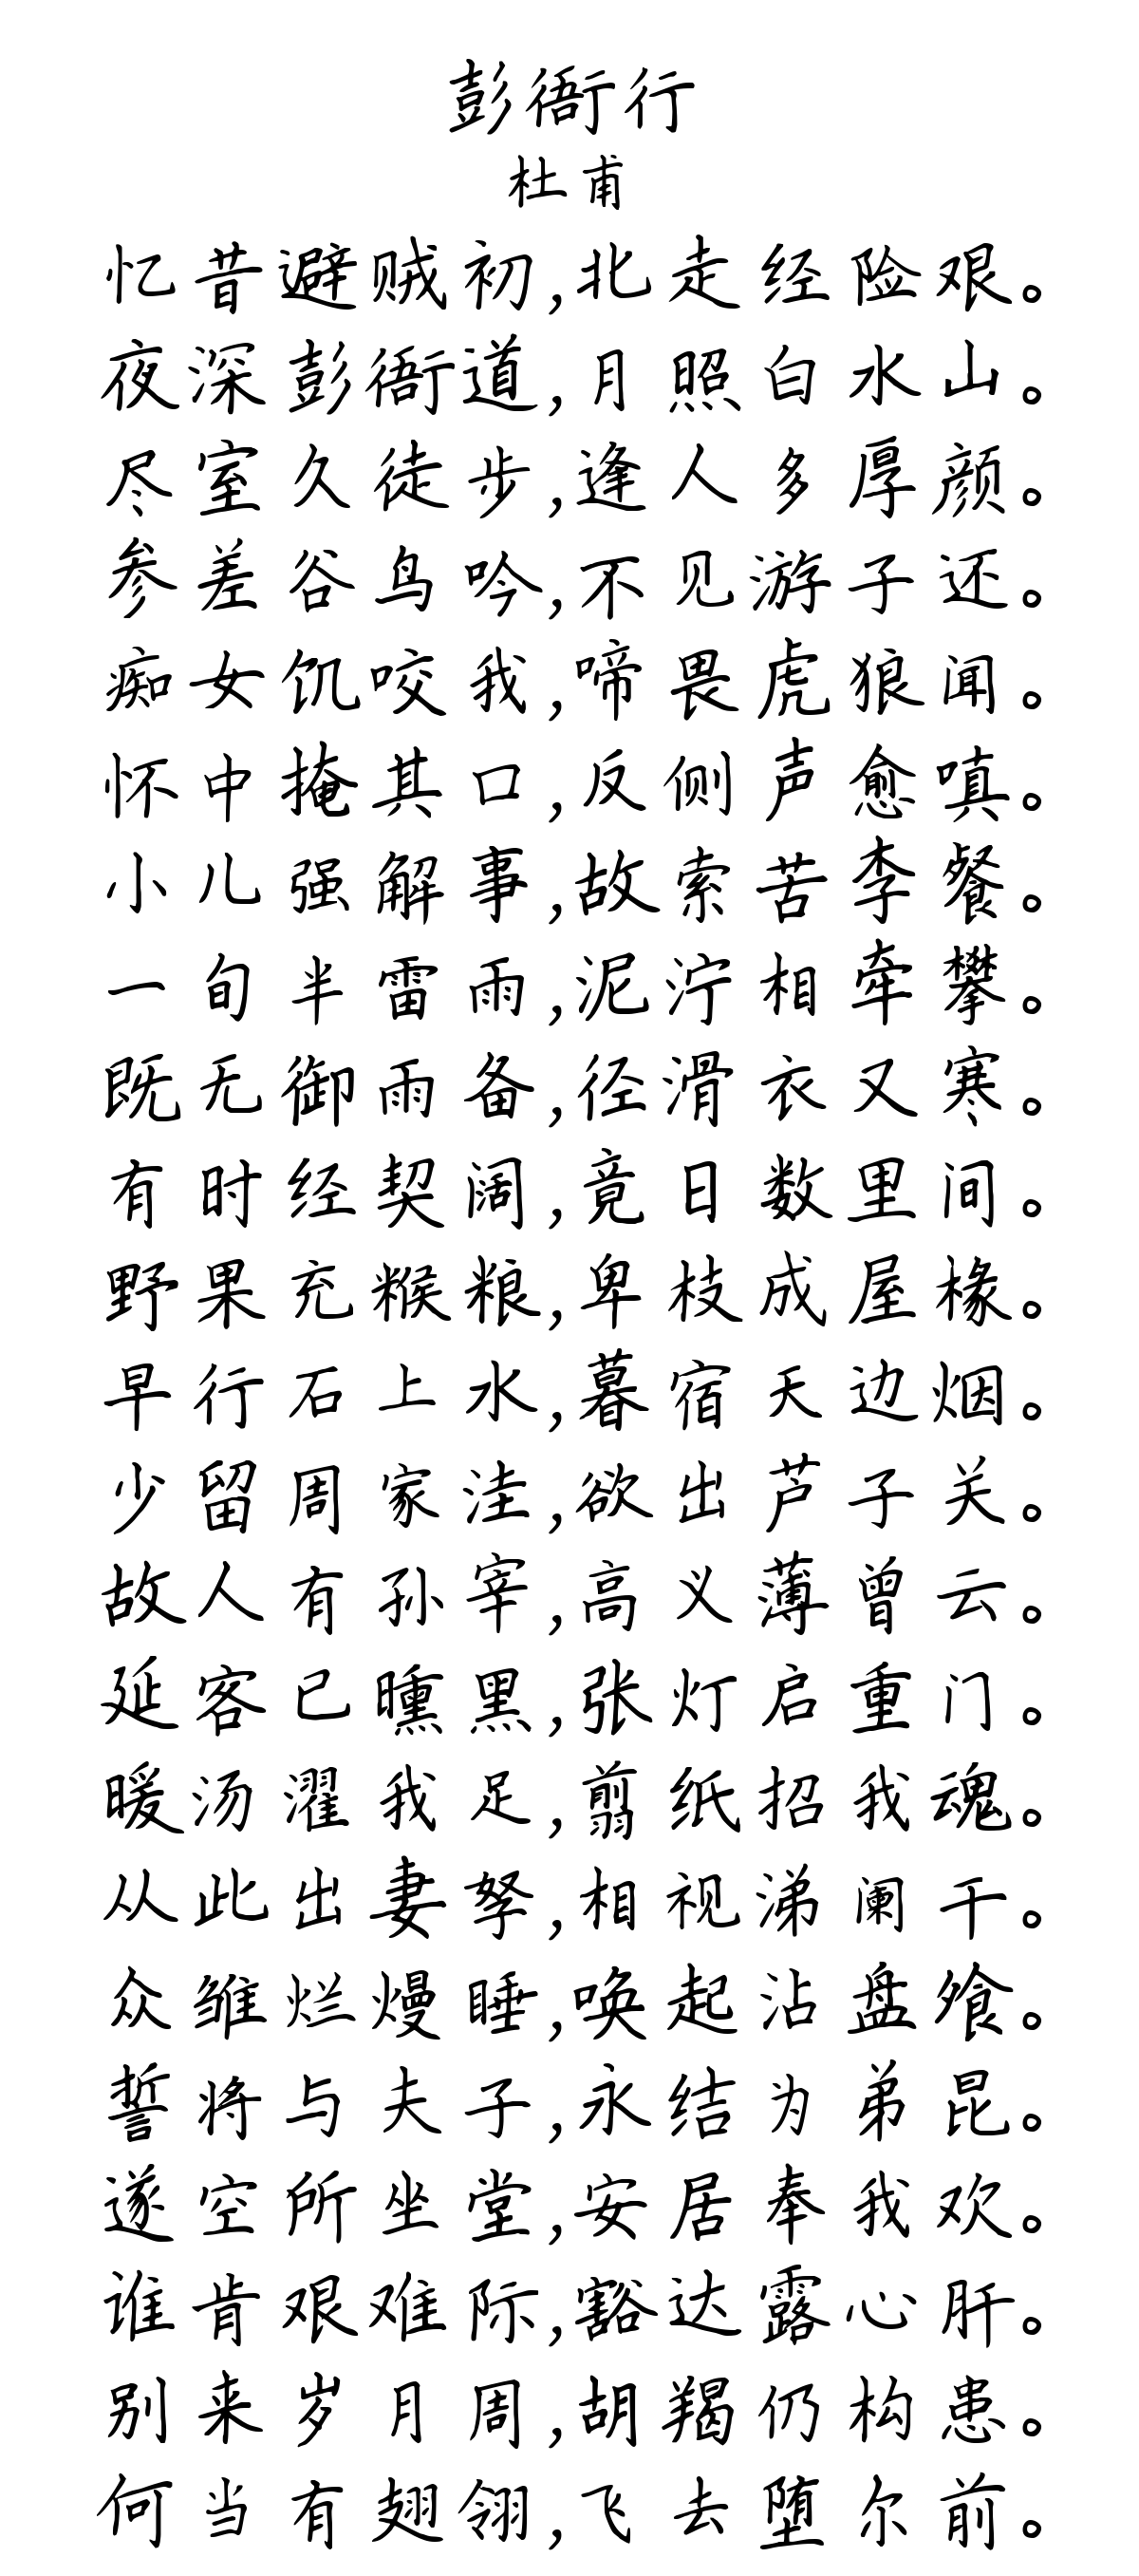 彭衙行
杜甫
忆昔避贼初,北走经险艰。
夜深彭衙道,月照白水山。
尽室久徒步,逢人多厚颜。
参差谷鸟吟,不见游子还。
痴女饥咬我,啼畏虎狼闻。
怀中掩其口,反侧声愈嗔。
小儿强解事,故索苦李餐。
一旬半雷雨,泥泞相牵攀。
既无御雨备,径滑衣又寒。
有时经契阔,竟日数里间。
野果充糇粮,卑枝成屋椽。
早行石上水,暮宿天边烟。
少留周家洼,欲出芦子关。
故人有孙宰,高义薄曾云。
延客已曛黑,张灯启重门。
暖汤濯我足,剪纸招我魂。
从此出妻孥,相视涕阑干。
众雏烂熳睡,唤起沾盘飧。
誓将与夫子,永结为弟昆。
遂空所坐堂,安居奉我欢。
谁肯艰难际,豁达露心肝。
别来岁月周,胡羯仍构患。
何当有翅翎,飞去堕尔前。